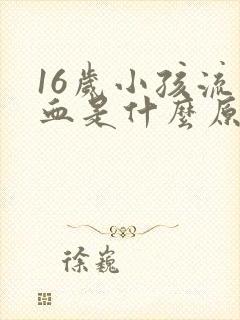 16歲小孩流
血是什麼原
徐巍